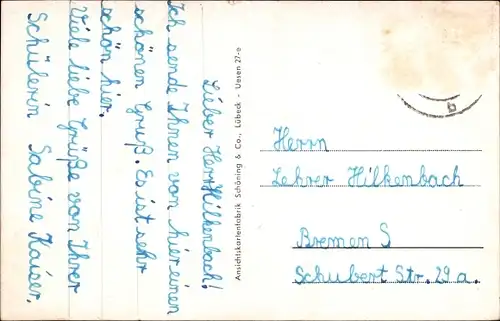 Lieber Herr Hilkenbach!
Ich sende Ihnen von hier einen
schönen Gruß. Es ist sehr
schön hier.
Viele liebe Grüße von Ihrer
Schülerin Sabine Kaiser.
Ansichtskartenfabrik Schöning & Co., Lübeck - Uesen 27-e
Herrn
Lehrer Hilkenbach
Bremen S
Schubert Str. 29 a.
b